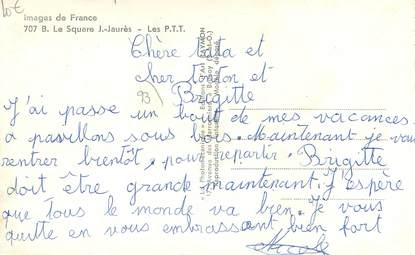 10€
Images de France
707 B. Le Square J.-Jaurès - Les P.T.T.
Chère tata et
cher tonton et
Brigitte
93
J'ai passé un bout de mes vacances
a pavillons sous bois. Maintenant je vais
rentrer bientôt, pour repartir. Brigitte
doit être grande maintenant. J'espère
que tous le monde va bien. Je vous
quitte en vous embrassant bien fort
Nicole